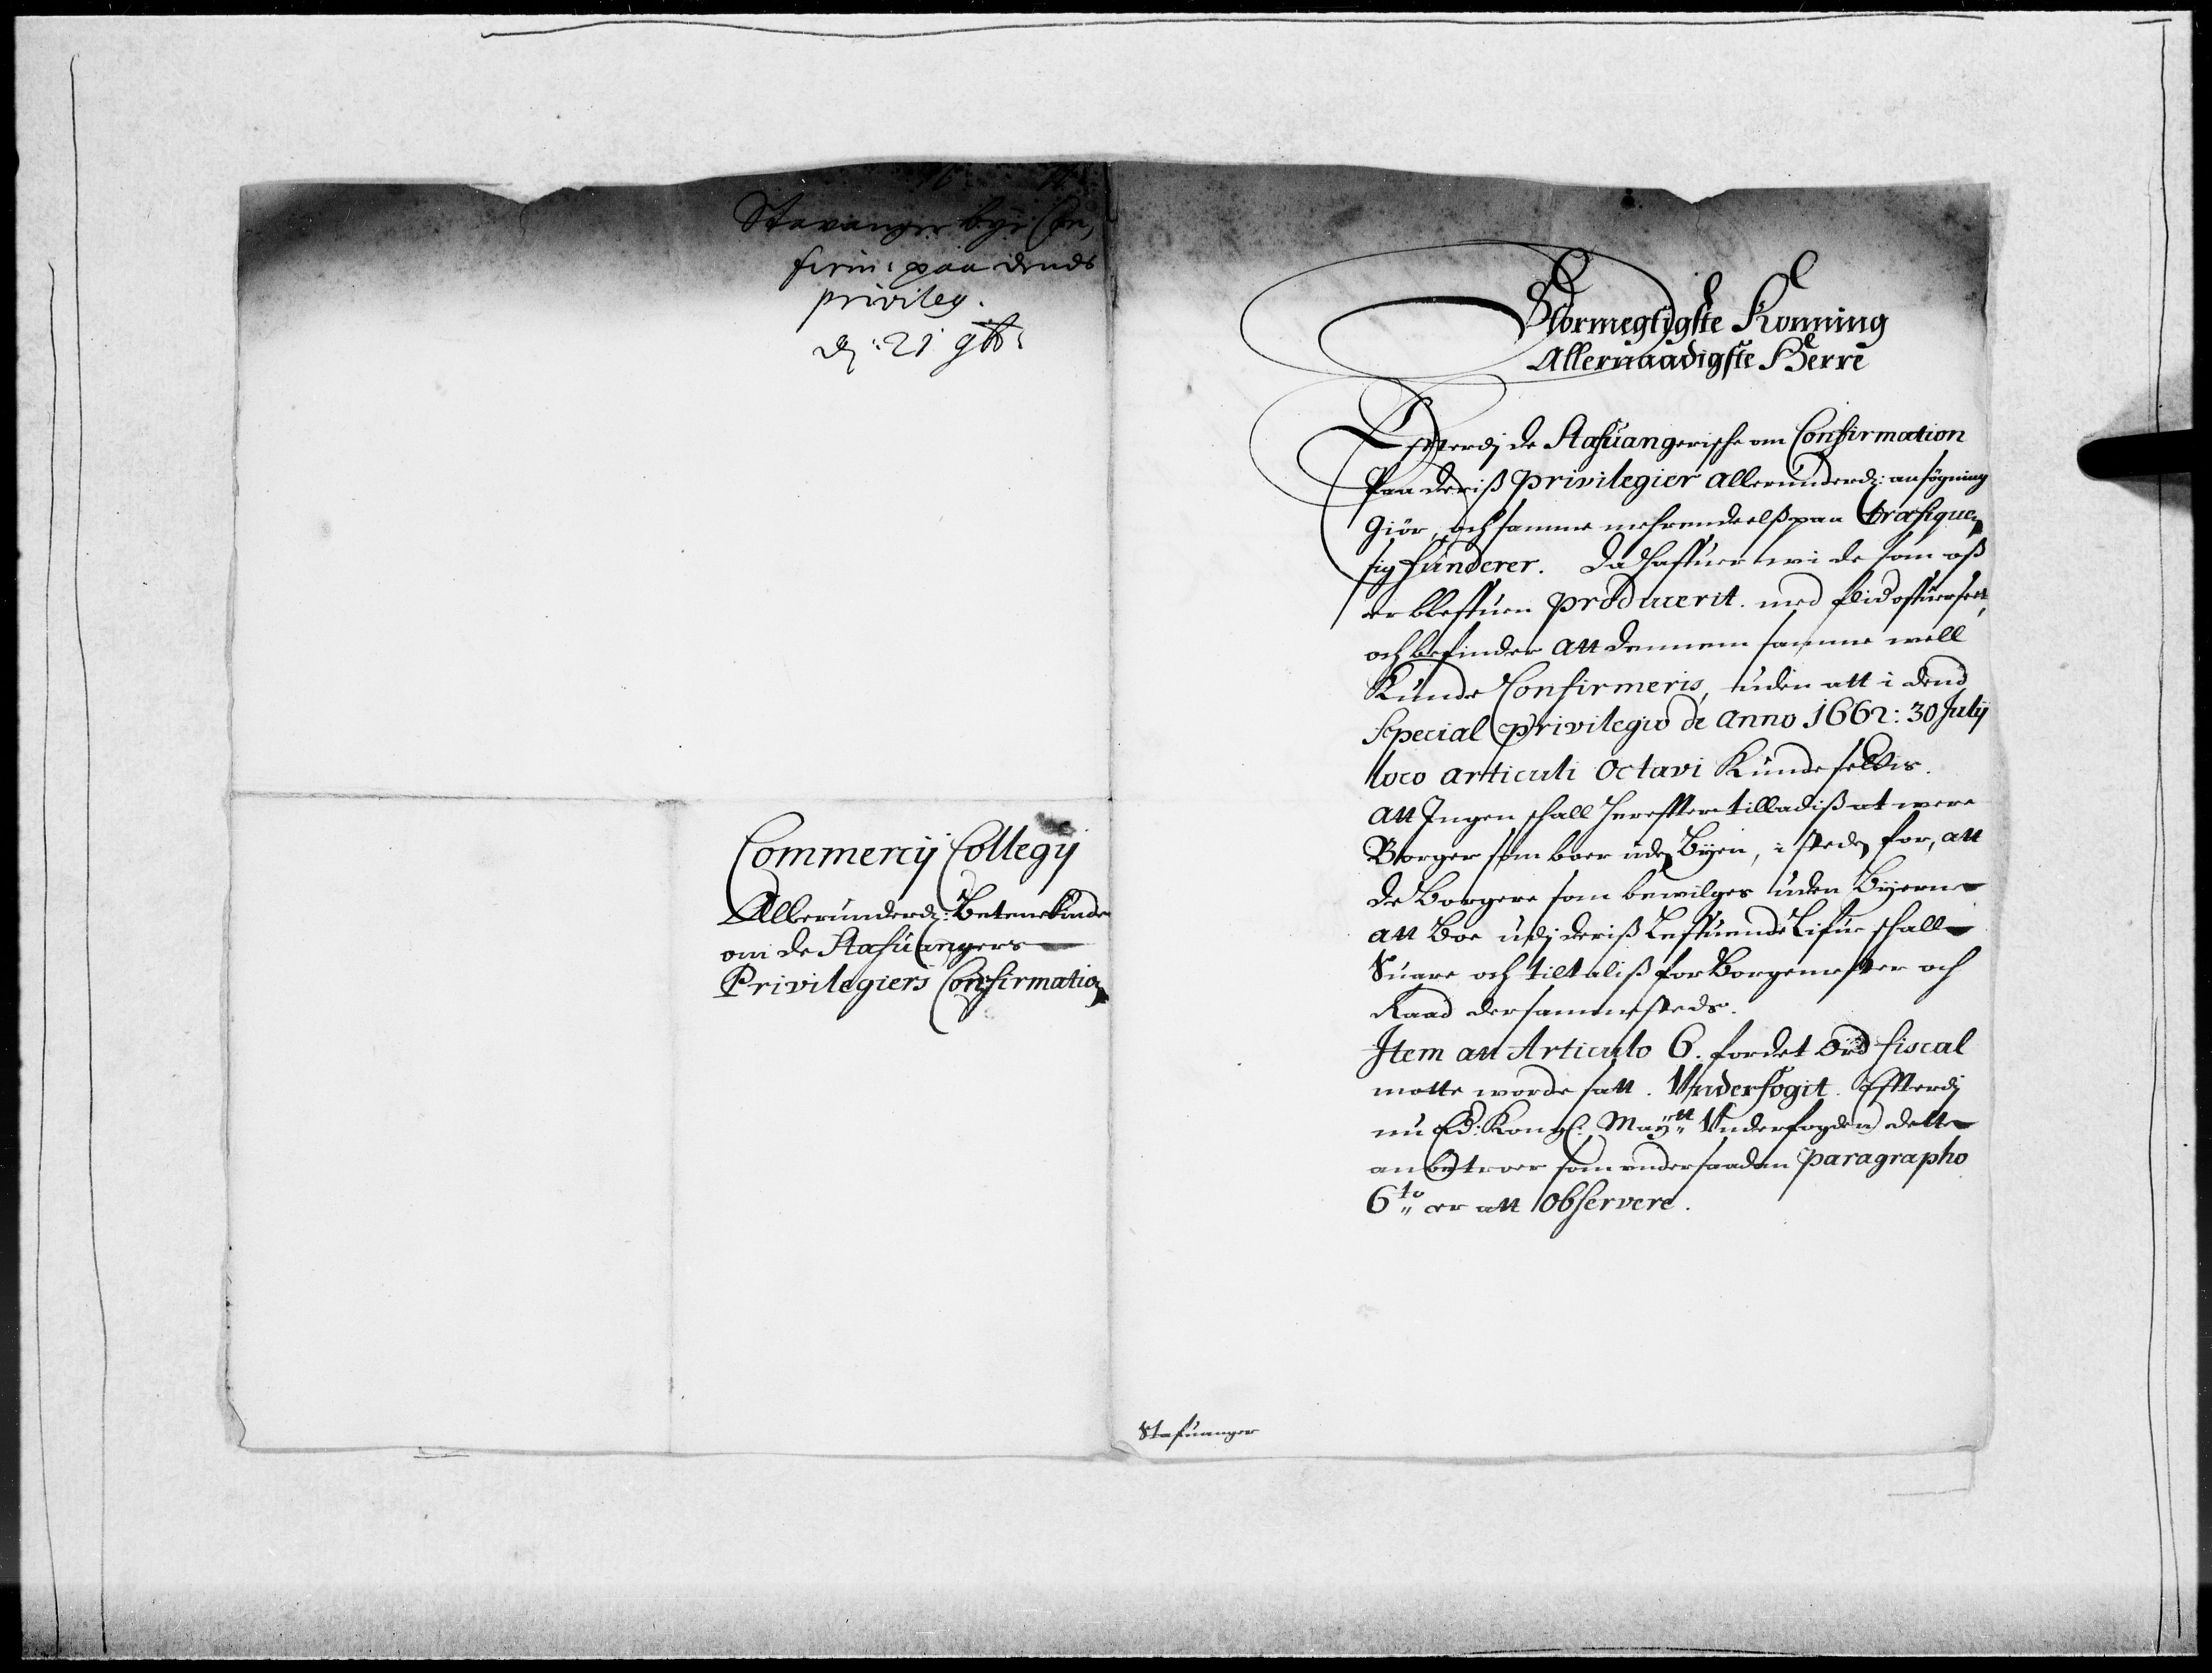 Stavanger bÿe Con¬
firm: paa dends
privileg.
d: 21 9b:
Commercij Collegij
Allerunderd: Betenckinde
om de Stafuangers
Privilegiers Confirmation
Stormegtigste Konning
Allernaadigste Herre
Effterdj de Stafuangerische om Confirmation
Paa deriß Privilegier allerunderd: ansögning
Giör, och samme mehrendeelß paa trafiquen
sig funderer. Da haffuer wi de som oß
er bleffuen producerit med flid offuerseet,
och befinder att dennem samme well
Kunde Confirmeris, uden att i dend
Special Privilegio de Anno 1662: 30 Julij
loco articuli Octavi Kunde settis.
att Ingen schall hereffter tilladiß at were
Borger som boer uden Byen, i steden for, att
de Borgere som bewilges uden Byerne
att Boe udj deriß Leffuende Lifue schalle
Suare och tiltaliß for Borgemester och
Raad dersammesteds.
Item att Articulo 6. for det Ord fiscal
motte worde satt. Underfogit. Effterdj
nu Ed: Kongl: Maÿtt Underfogden dette
anbetroer som under saadan paragrapho
6to er att Observere.
Stafuanger